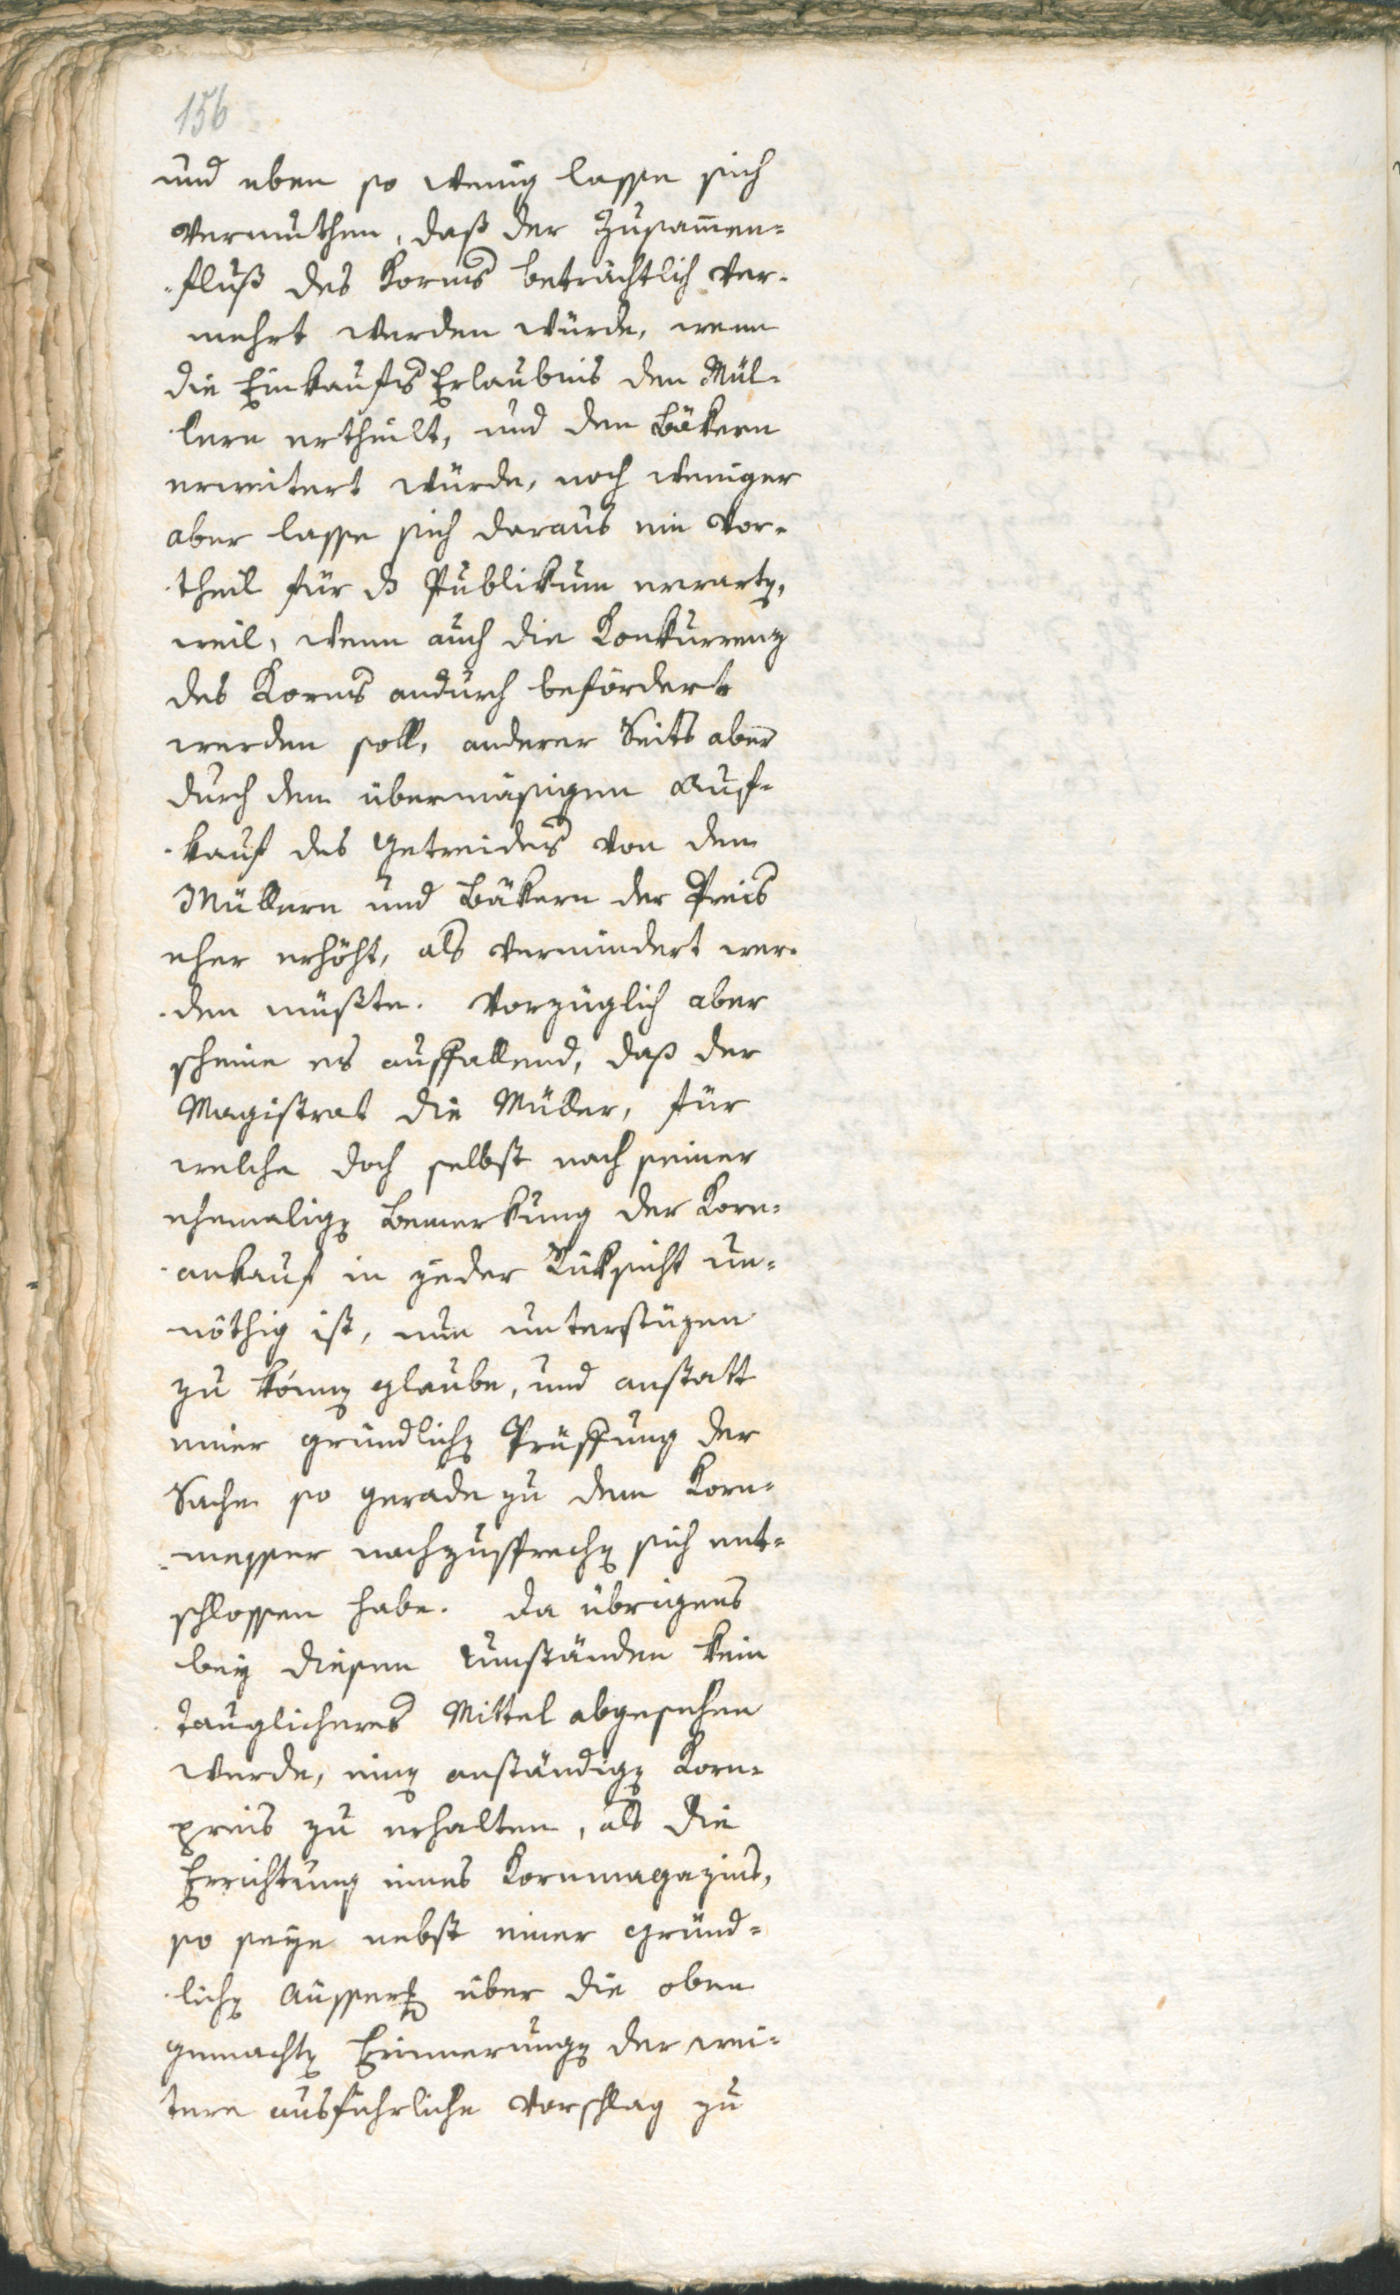 156
und eben so wenig lasse sich
vermuthen, daß der Zusam̅en=
=fluß des Korns beträchtlich ver=
mehrt werden würde, wenn
die Einkaufs Erlaubnis den Mül=
lern ertheilt, und den Bäkern
erweitert würde, noch weniger
aber lasse sich daraus ein Vor=
theil für ds Publikum erwartn,
weil, wenn auch die Konkurrenz
des Korns andurch befördert
werden soll, anderer Seits aber
durch den übermäsigen Auf=
=kauf des Getreides von den
Müllern und Bäkern der Preis
eher erhöht, als vermindert wer=
=den müßte. Vorzüglich aber
scheine es auffallend, daß der
Magistrat die Müller, für
welche doch selbst nach seiner
ehemalign Bemerkung der Korn=
=ankauf in jeder Rüksicht un=
nöthig ist, nun unterstüzen
zu könn glaube, und anstatt
einer gründlichn Prüffung der
Sache so gerade zu dem Korn=
=messer nachzusprechn sich ent=
schlossen habe. Da übrigens
bey diesen Umständen kein
tauglicheres Mittel abgesehen
werde, einn anständign Korn=
preis zu erhalten, als die
Errichtung eines Kornmagazins,
so seye nebst einer gründ=
lichn Äusserg über die oben
gemachtn Erinnerungn der wei=
tere ausführliche Vorschlag zu